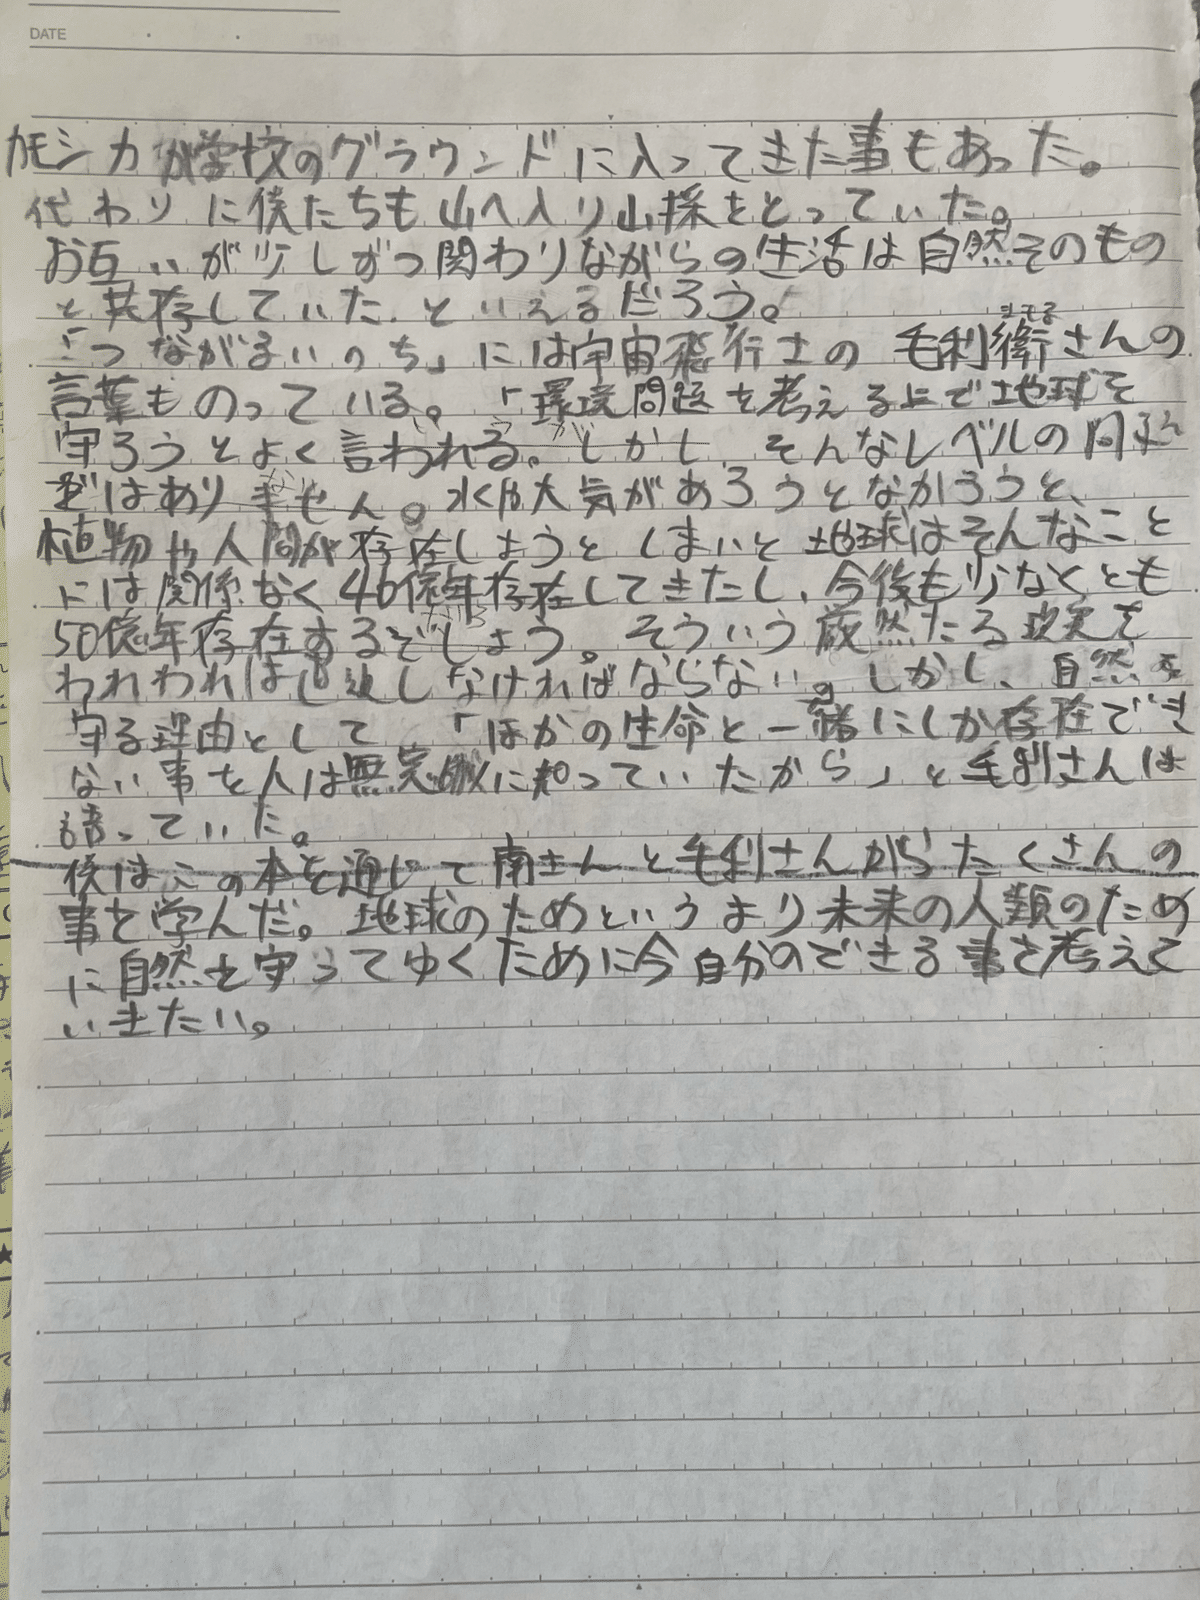 DATE
カモシカが学校のグラウンドに入ってきた事もあった。
代わりに僕たちも山へ入り山採をとっていた。
お互いが少しずつ関わりながらの生活は自然そのもの
と共存していた、といえるだろう。
「つながるいのち」には宇宙飛行士の毛利衛さんの
まもる
言葉ものっている。「環境問題を考える上で地球を
守ろうとよく言われる。しかし、そんなレベルの問題
ではありません。水や大気があろうとなかろうと、
植物や人間が存在しようとしまいと地球はそんなこと
には関係なく46億年存在してきたし、今後も少なくとも
50億年存在するでしょう。そういう厳然たる事実を
われわれは直視しなければならない。しかし、自然を
守る理由として「ほかの生命と一緒にしか存在でき
ない事を人は無意識に知っていたから」と毛利さんは
語っていた。
僕はこの本を通じて南さんと毛利さんからたくさんの
事を学んだ。地球のためというより未来の人類のため
に自然を守ってゆくために今自分のできる事を考えて
いきたい。